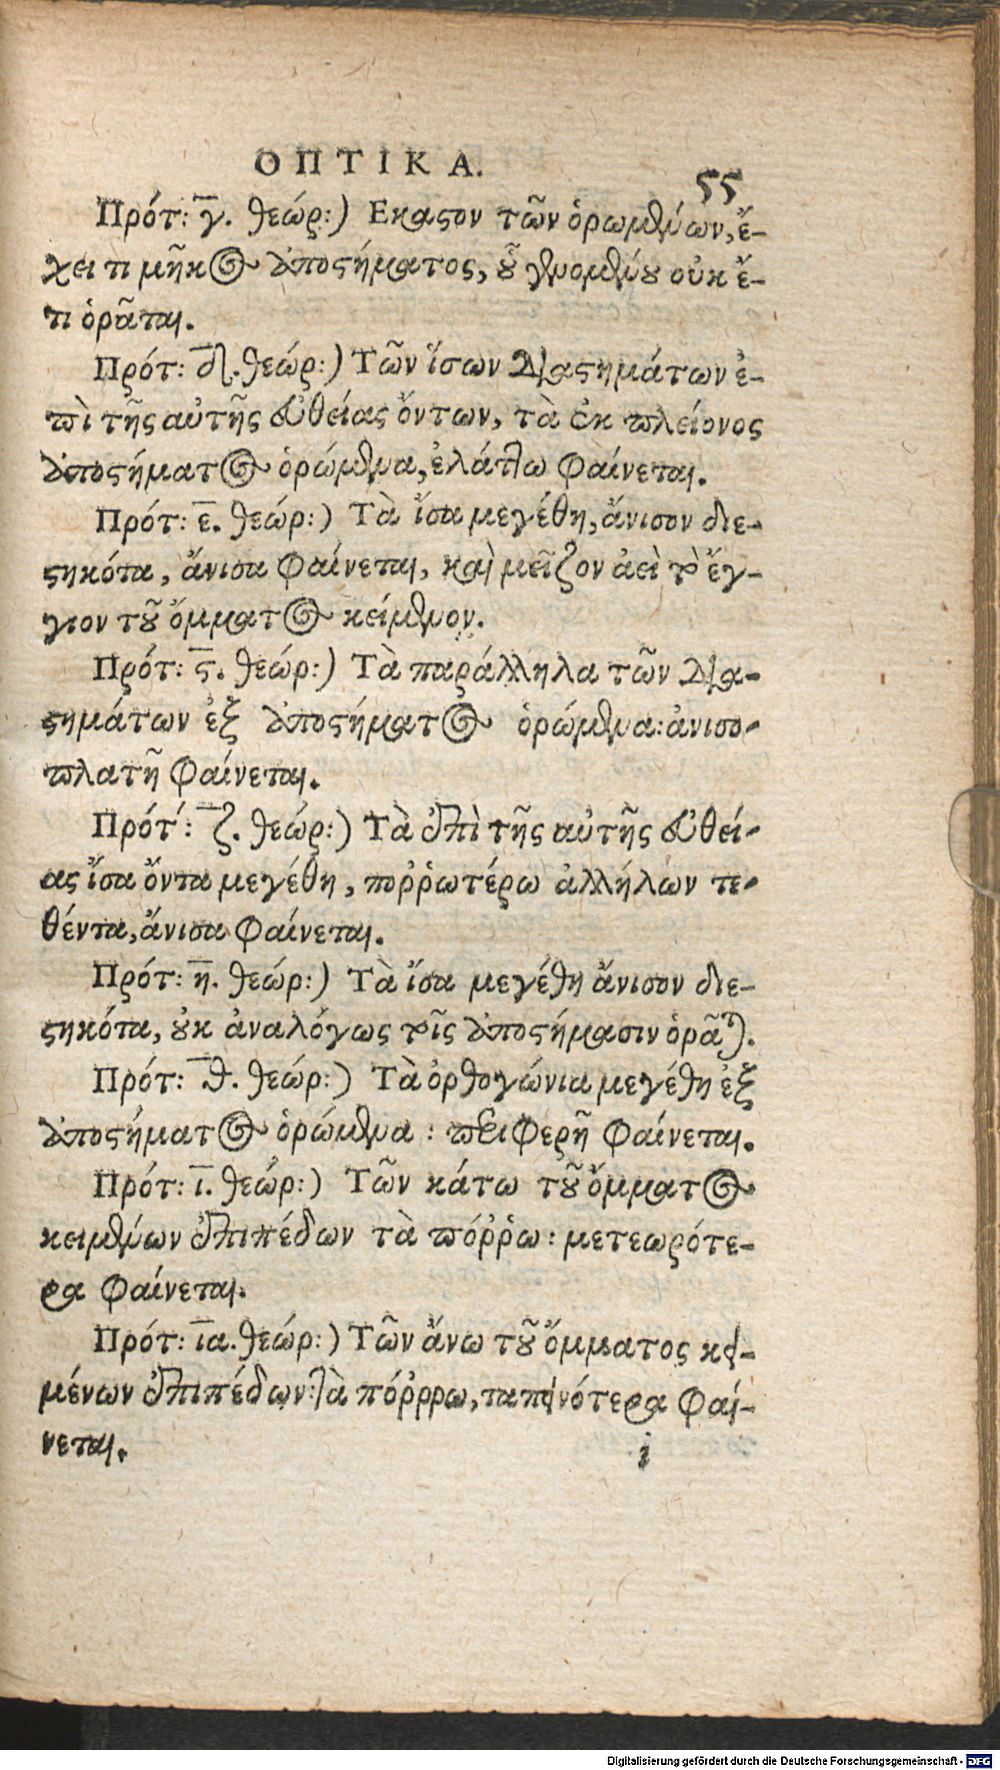 ΟΠΤΙΚΑ.
55
Πρότ: γ̅. θεώρ:) Εκαστον τῶν ὁρωμένων, ἔ-
χει τι μῆκος ἀποστήματος, οὗ γενομένου οὐκ ἔ-
τι ὁρᾶται.
Πρότ: δ̅. θεώρ:) Τῶν ἴσων διαστημάτων ἐ-
πὶ τῆς αὐτῆς εὐθείας ὄντων, τὰ ἐκ πλείονος
ἀποστήματος ὁρώμενα, ἐλάττω φαίνεται.
Πρότ: ε̅. θεώρ:) Τὰ ἴσα μεγέθη, ἄνισον διε-
στηκότα, ἄνισα φαίνεται, καὶ μεῖζον ἀεὶ τὸ ἔγ-
γιον τοῦ ὄμματος κείμενον.
Πρότ: ϛ̅. θεώρ:) Τὰ παράλληλα τῶν δια-
στημάτων ἐξ ἀποστήματος ὁρώμενα: ἀνισο-
πλατῆ φαίνεται.
Πρότ: ζ̅. θεώρ:) Τὰ ἐπὶ τῆς αὐτῆς εὐθεί-
ας ἴσα ὄντα μεγέθη, πορῤῥωτέρω ἀλλήλων τε-
θέντα, ἄνισα φαίνεται.
Πρότ: η̅. θεώρ:) Τὰ ἴσα μεγέθη ἄνισον διε-
στηκότα, οὐκ ἀναλόγως τοῖς ἀποστήμασιν ὁρᾶται.
Πρότ: θ̅. θεώρ:) Τὰ ὀρθογώνια μεγέθη ἐξ
ἀποστήματος ὁρώμενα: περιφερῆ φαίνεται.
Πρότ: ι̅. θεώρ:) Τῶν κάτω τοῦ ὄμματος
κειμένων ἐπιπέδων τὰ πόῤῥω: μετεωρότε-
ρα φαίνεται.
Πρότ: ι̅α. θεώρ:) Τῶν ἄνω τοῦ ὄμματος κει-
μένων ἐπιπέδων: τὰ πόῤῥρω, ταπεινότερα φαί-
νεται.
i
Digitalisierung gefördert durch die Deutsche Forschungsgemeinschaft - DFG